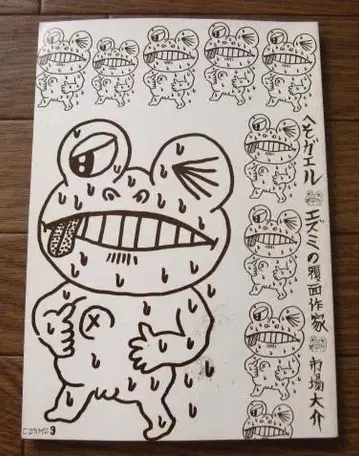 へそガエル エズミの覆面作家 市場大介
9